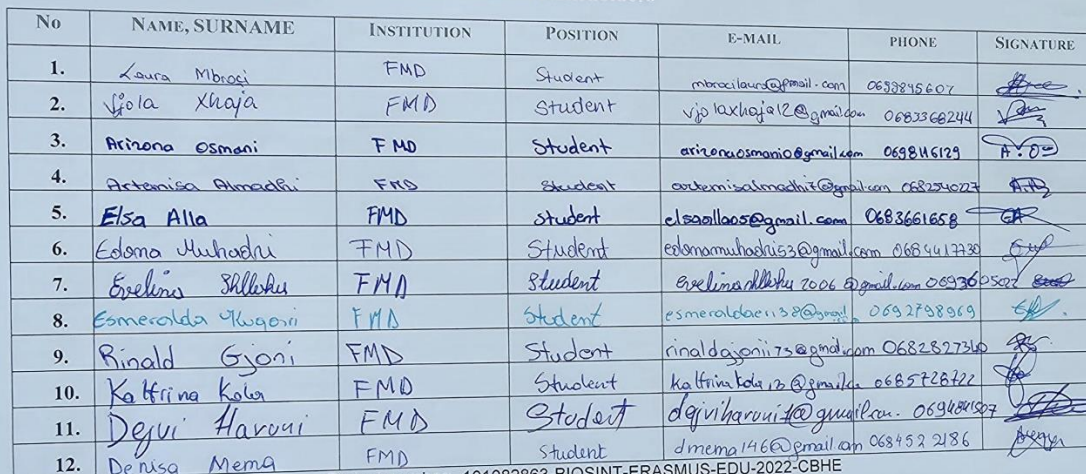 No NAME, SURNAME INSTITUTION POSITION E-MAIL PHONE SIGNATURE
1. Laura Mbroçi FMD Student mbrocilaura@gmail.com 0699845607
2. Vjola Xhaja FMD Student vjolaxhaja12@gmail.com 0683368244
3. Arizona Osmani FMD Student arizonaosmani0@gmail.com 0698116129 A.O
4. Artemisa Almadhi FMD Student artemisalmadhi7@gmail.com 0682540227 A.A
5. Elsa Alla FMD student elsaalla05@gmail.com 0683661658 EA
6. Edona Muhadri FMD Student edonamuhadri53@gmail.com 0684417730
7. Evelina FMD Student 2006@gmail.com 0693605022
8. Esmeralda FMD Student esmeraldaer138@gmail. 0692798969
9. Rinald Gjoni FMD Student rinaldgjonii75@gmail.com 0682827340
10. Kaltrina Kola FMD Student kaltrinakola13@gmail.co 0685728722
11. Dejvi Haruni FMD Student 0694841507
12. Denisa Mema FMD student dmema146@gmail.com 068452 2186
101082863-BIOSINT-ERASMUS-EDU-2022-CBHE